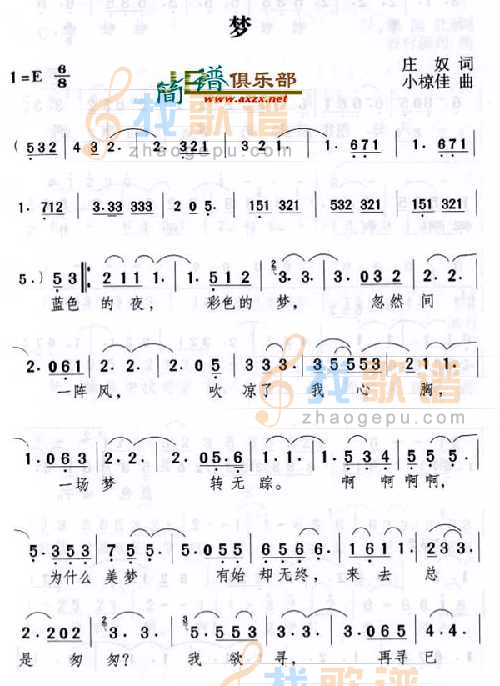 梦
1=E 6/8
简谱俱乐部
www.axzx.net
庄奴 词
小椋佳 曲
找歌谱
zhaogepu.com
(532 | 432. 2. 321 | 321 1. 671 | 1. 671
1. 712 | 3.33 333 | 205. | 151 321 | 532 321 | 151 321
5.) 53 ‖: 2111 1. | 1. 512 | 3. 3. | 3. 032 | 2. 2.
蓝色 的夜， 彩色的 梦， 忽然间
2. 061 | 2. 2. | 2. 205 | 333. | 35553 | 211
一阵 风， 吹 凉了 我 心 胸，
找歌谱
zhaogepu.com
1. 063 | 2. 2. | 205.6 | 2210. | 1. 535 | 555.
一场 梦 转无踪。 啊 啊啊啊，
5. 353 | 755. | 5. 055 | 6566. | 161 1. | 233.
为什么 美梦 有始 却无终， 来去 总
2. 202 | 3. 3. | 5. 553 | 3. 3. | 3. 065 | 4. 4.
是 匆 匆？ 我 欲 寻， 再寻已
找歌谱
zhaogepu.com